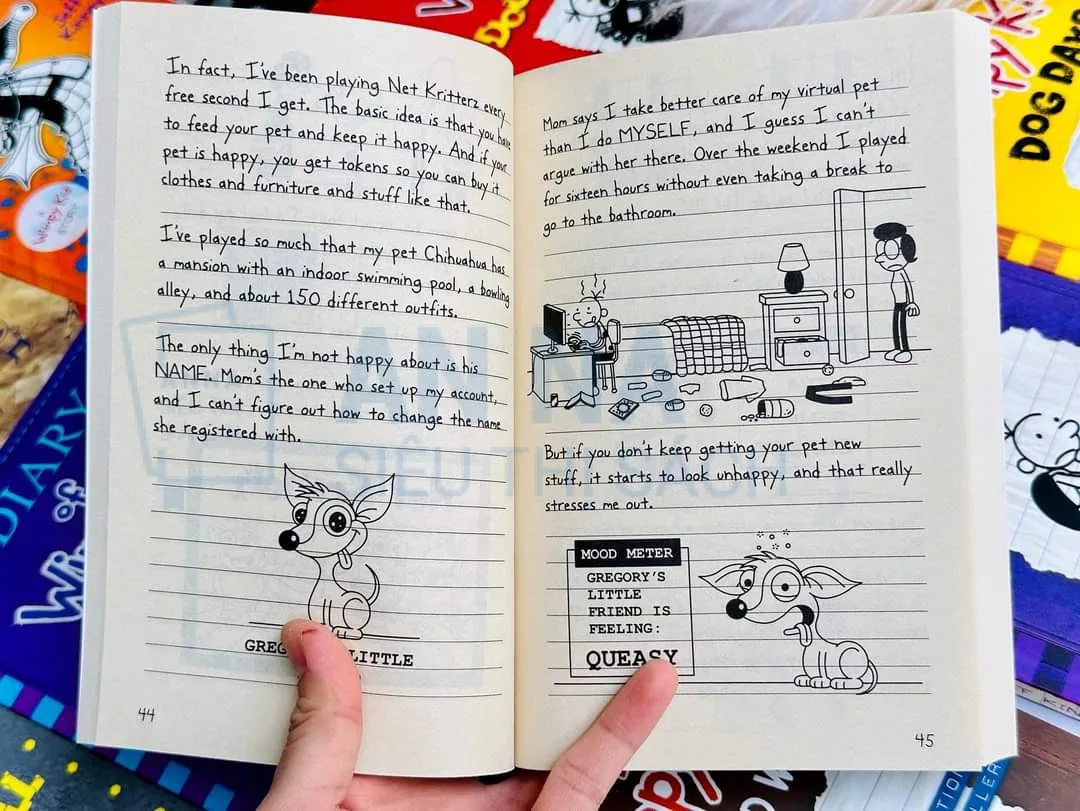 In fact, I've been playing Net Kritterz every
free second I get. The basic idea is that you have
to feed your pet and keep it happy. And if your
pet is happy, you get tokens so you can buy it
clothes and furniture and stuff like that.
I've played so much that my pet Chihuahua has
a mansion with an indoor swimming pool, a bowling
alley, and about 150 different outfits.
The only thing I'm not happy about is his
NAME. Mom's the one who set up my account,
and I can't figure out how to change the name
she registered with.
GREG LITTLE
44
Mom says I take better care of my virtual pet
than I do MYSELF, and I guess I can't
argue with her there. Over the weekend I played
for sixteen hours without even taking a break to
go to the bathroom.
But if you don't keep getting your pet new
stuff, it starts to look unhappy, and that really
stresses me out.
MOOD METER
GREGORY'S
LITTLE
FRIEND IS
FEELING:
QUEASY
45
AN NA
SIÊU THỊ SÁCH
DOG DAYS
DIARY
of
Wimpy Kid
STORY